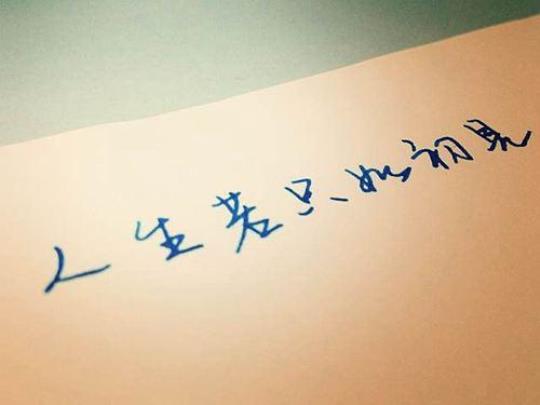 人生若只如初见